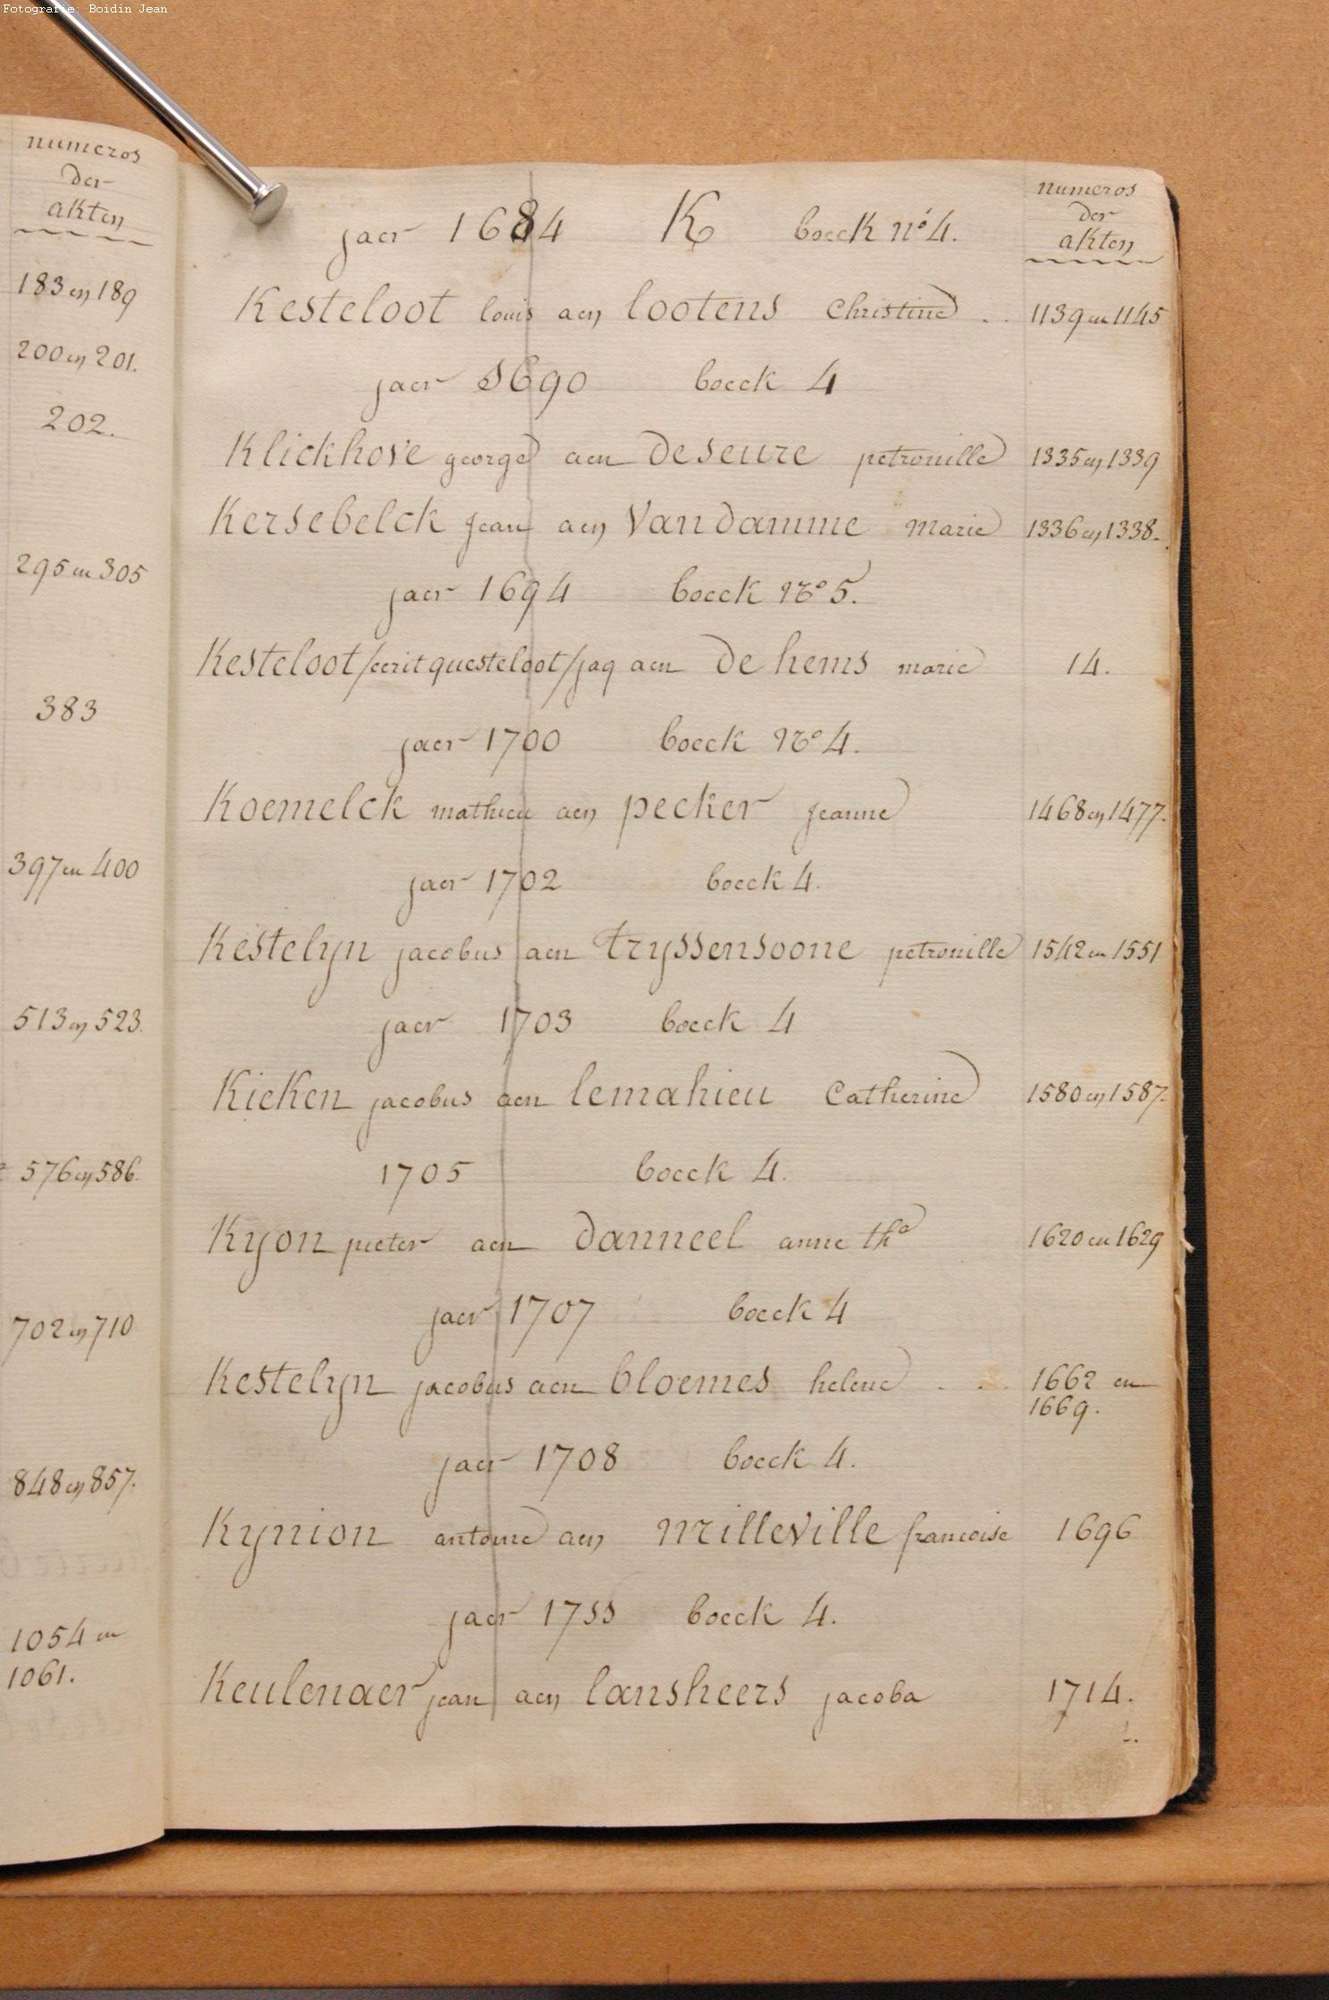 Fotografie: Boidin Jean
numeros
der
akten
183 en 189
200 en 201.
202.
295 en 305
383
397 en 400
513 en 523.
576 en 586.
702 en 710
848 en 857.
1054 en
1061.
jaer 1684 K boeck n° 4.
numeros
der
akten
Kesteloot louis aen lootens Christine . . 1139 en 1145
jaer 1690 boeck 4
Klickhove george aen Deseure petronille 1335 en 1339
Kersebelck Jean aen Vandamme Marie 1336 en 1338.
jaer 1694 boeck N° 5.
Kesteloot /ecrit questeloot/ jaq aen De hems marie 14.
jaer 1700 boeck N° 4.
Koemelck mathieu aen pecker Jeanne 1468 en 1477.
jaer 1702 boeck 4.
Kestelyn jacobus aen tryssensoone petronille 1542 en 1551
jaer 1703 boeck 4
Kieken jacobus aen lemahieu Catherine 1580 en 1587.
1705 boeck 4.
Kyon pieter aen Danneel anne th^a 1620 en 1629
jaer 1707 boeck 4
Kestelyn jacobus aen bloemes helene . . . 1662 en
1669.
jaer 1708 boeck 4.
Kynion antoine aen Milleville francoise 1696
jaer 1755 boeck 4.
Keulenaer jean aen lansheers jacoba 1714.